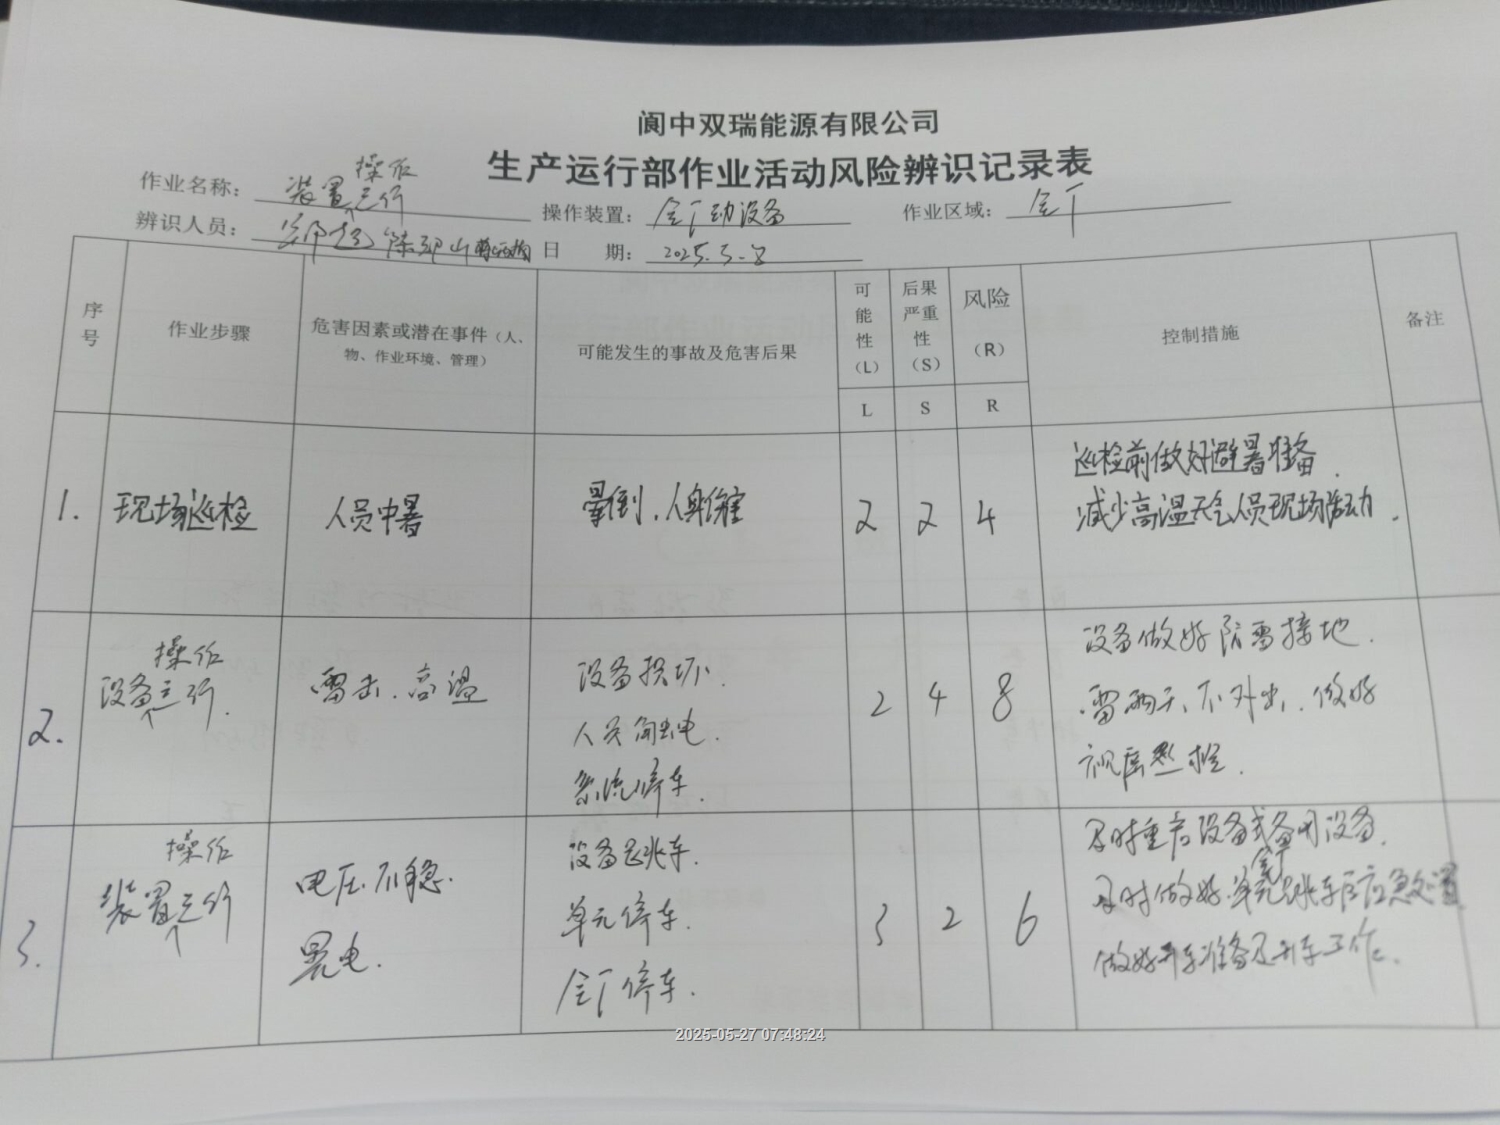 阆中双瑞能源有限公司
生产运行部作业活动风险辨识记录表
操作
作业名称： 装置运行 操作装置： 全厂动设备 作业区域： 全厂
辨识人员： 日 期： 2025.5-8
序号 作业步骤 危害因素或潜在事件（人、物、作业环境、管理） 可能发生的事故及危害后果 可能性（L） 后果严重性（S） 风险（R） 控制措施 备注
L S R
1. 现场巡检 人员中暑 晕倒，人身伤害 2 2 4 巡检前做好避暑准备.
减少高温天气人员现场活动.
2. 操作
设备运行. 雷击、高温 设备损坏.
人员触电.
系统停车. 2 4 8 设备做好防雷接地.
雷雨天、不外出、做好
3. 操作
装置运行 电压不稳.
晃电. 设备跳车.
单元停车.
全厂停车. 3 2 6 及时重启设备或备用设备.
及时做好单元跳车后应急处置
做好开车准备及开车工作.
2025-05-27 07:48:24